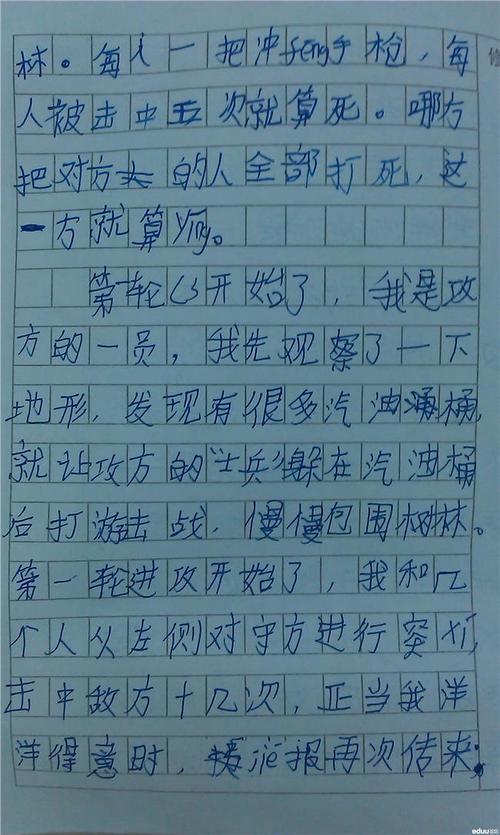 林。每人一把冲feng手枪,每
人被击中五次就算死。哪方
把对方的人全部打死,这
一方就算ying。
第一轮开始了,我是攻
方的一员,我先观察了一下
地形,发现有很多汽油桶,
就让攻方的“士兵”躲在汽油桶
后打游击战,慢慢包围树林。
第一轮进攻开始了,我和几
个人从左侧对守方进行突xi,
击中敌方十几次,正当我洋
洋得意时,jie报再次传来: